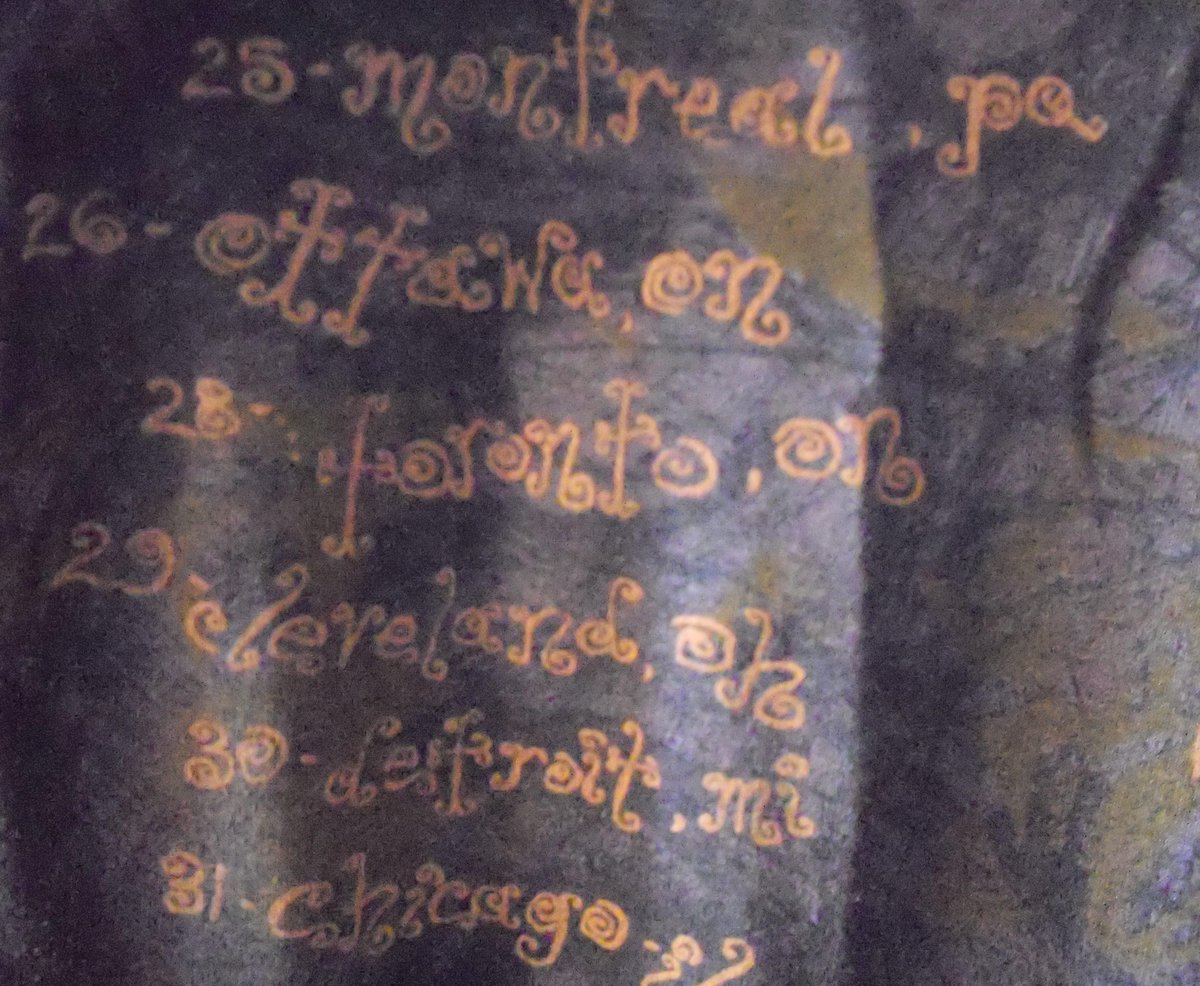 25-montreal, pa
26-ottawa, on
28-toronto, on
29-cleveland, oh
30-detroit, mi
31-chicago